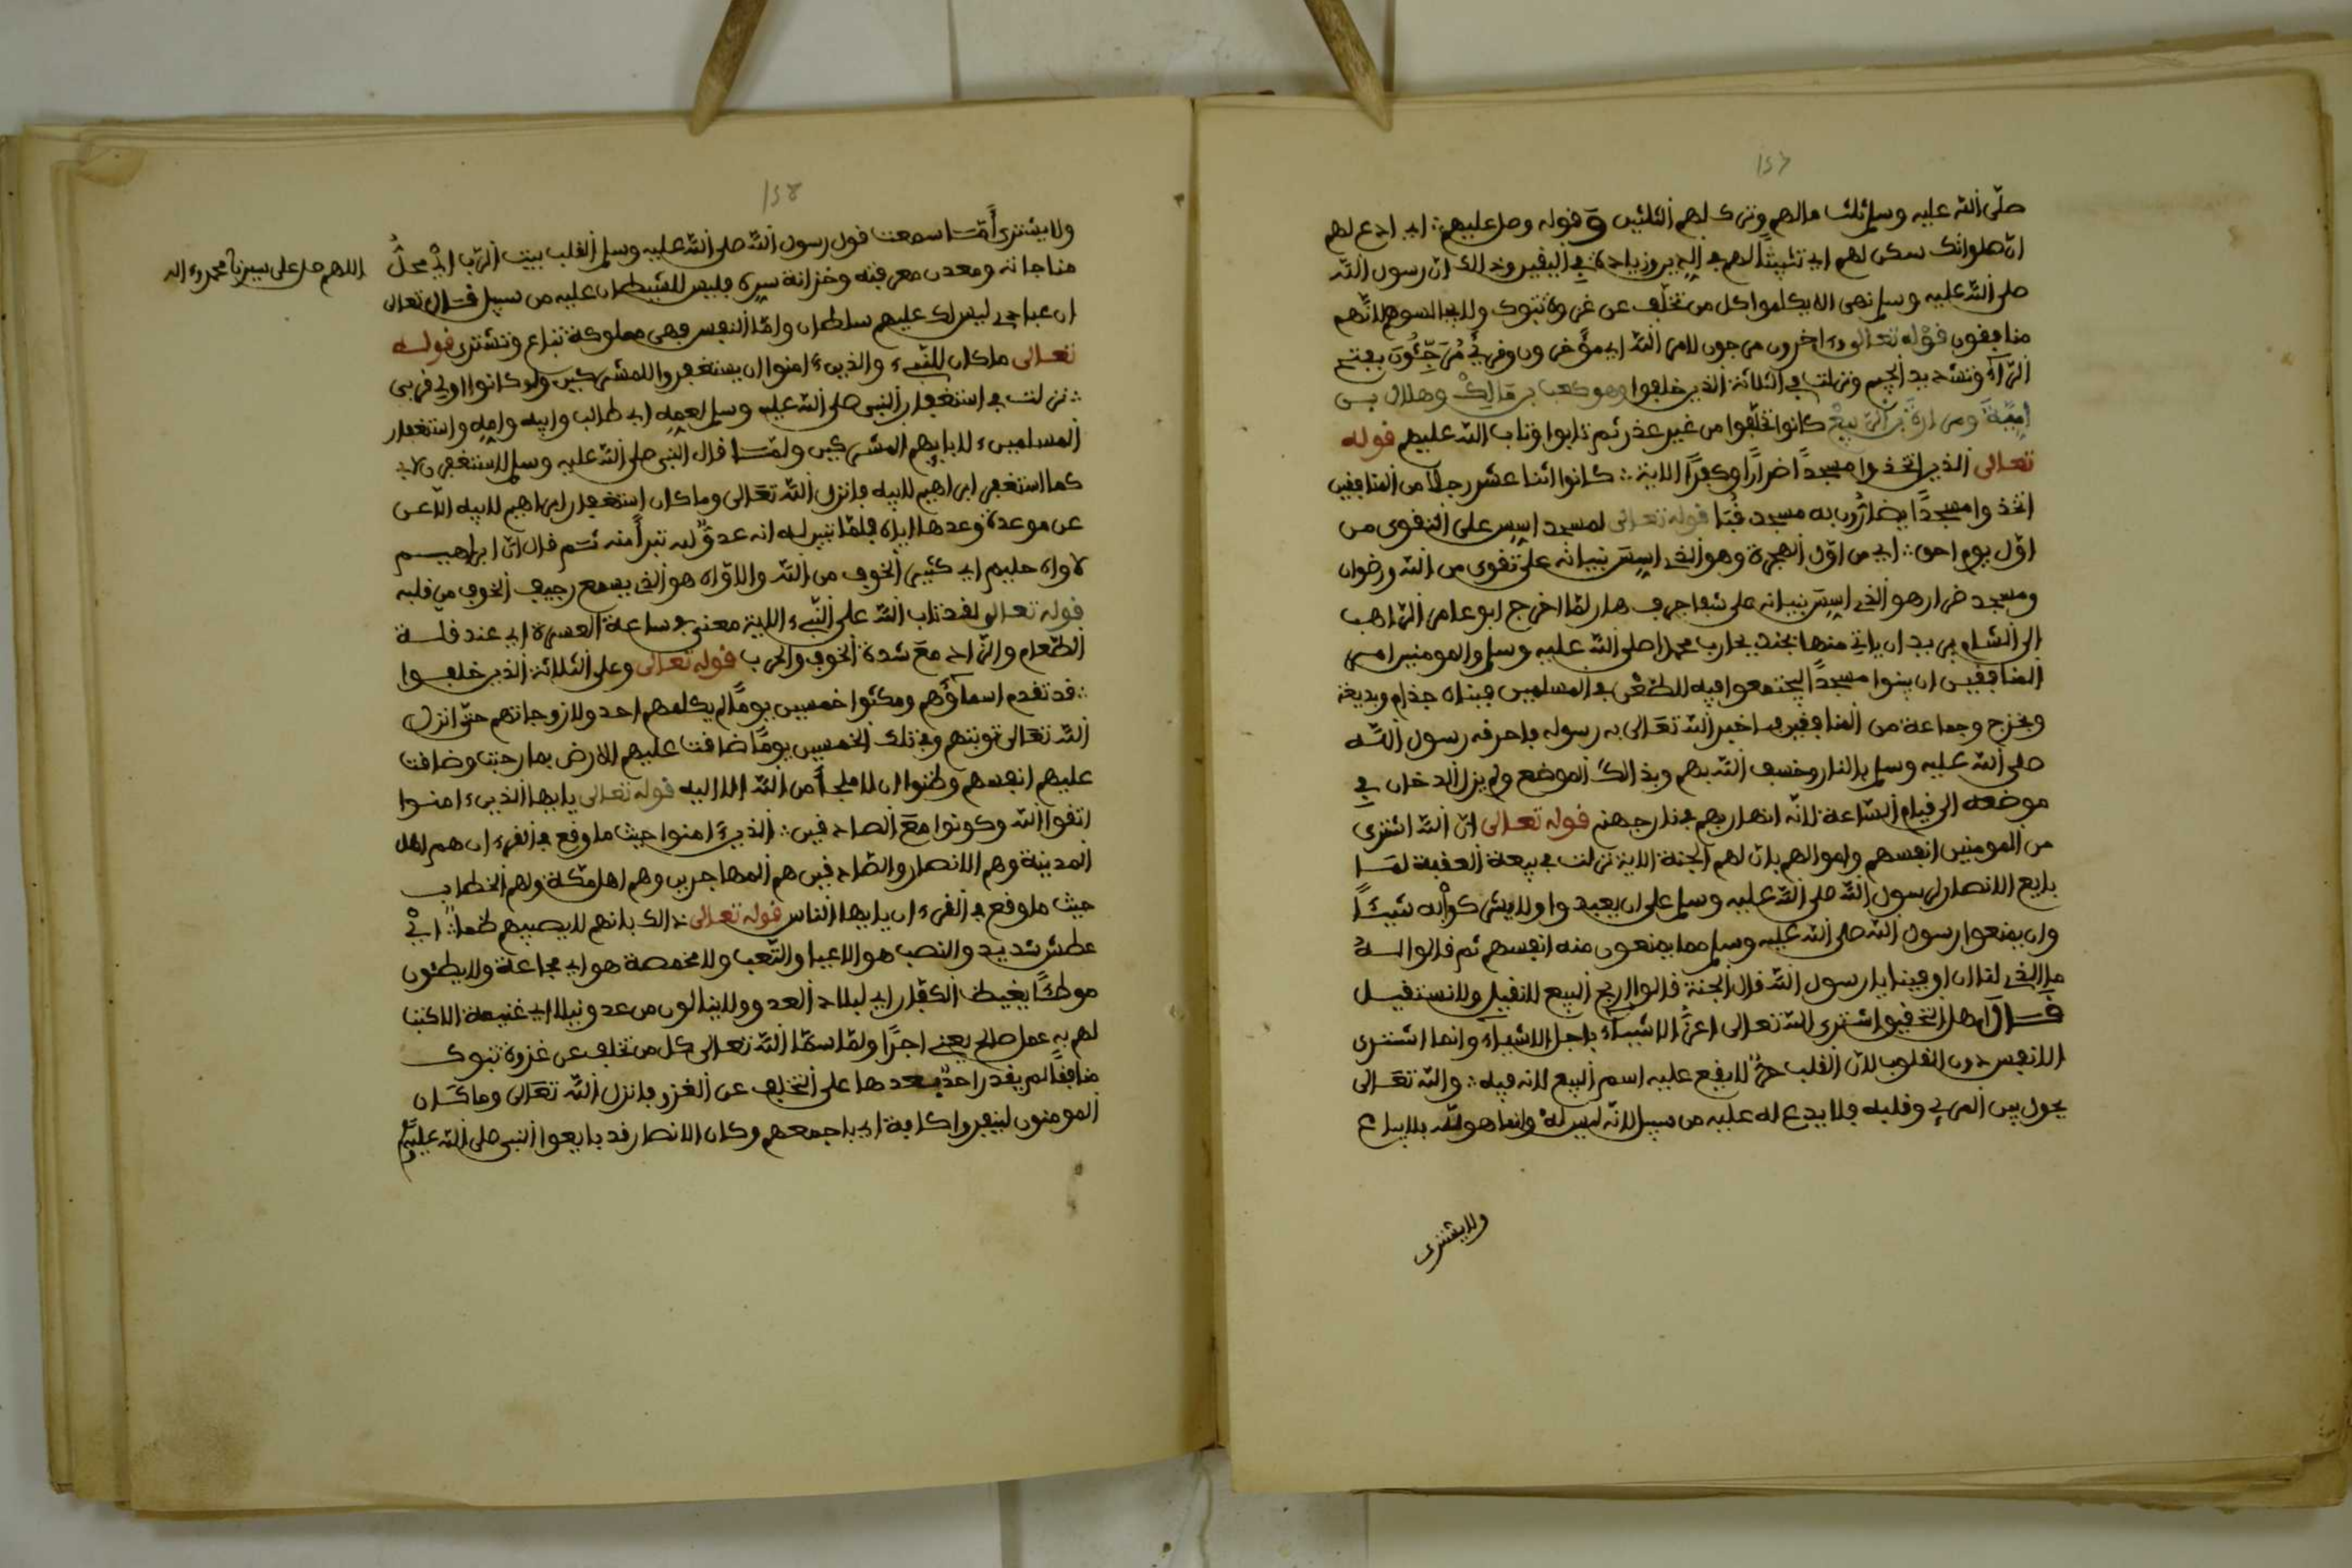 ١٥٧
صلى الله عليه وسلم ثلث مالهم وترك لهم الثلثين وقوله وصل عليهم: اي ادع لهم
ان صلواتك سكن لهم اي تثبيتا لهم في الدين وزيادة في اليقين وذالك ان رسول الله
صلى الله عليه وسلم نهى الا يكلموا كل من تخلف عن غزوة تبوك ولا يجالسوهم لانهم
منافقون قوله تعالى وءاخرون مرجون لامر الله اي مؤخرون وقرئ مرجئون بفتح
الراء وتشديد الجيم ونزلت في الثلاثة الذين خلفوا وهو كعب بن مالك وهلال بن
امية ومرارة بن الربيع كانوا تخلفوا من غير عذر ثم تابوا وتاب الله عليهم قوله
تعالى الذين اتخذوا مسجدا ضرارا وكفرا الاية: كانوا اثنا عشر رجلا من المنافقين
اتخذوا مسجدا يضارون به مسجد قبا قوله تعالى لمسجد اسس على التقوى من
اول يوم احق: اي من اول الهجرة وهو الذي اسس بنيانه على تقوى من الله ورضوان
ومسجد ضرار هو الذي اسس بنيانه على شفا جرف هار لما اخرج ابو عامر الراهب
الى الشام يريد ان ياتي منها بجند يحارب محمدا صلى الله عليه وسلم والمومنين امر
المنافقين ان يبنوا مسجدا ليجتمعوا فيه للطعن في المسلمين فبناه جذام وبديعة
وبخزج وجماعة من المنافقين فاخبر الله تعالى به رسوله فاحرقه رسول الله
صلى الله عليه وسلم بالنار وخسف الله بهم وبذالك الموضع ولم يزل الدخان في
موضعه الى قيام الساعة لانه انهار بهم في نار جهنم قوله تعالى ان الله اشترى
من المومنين انفسهم واموالهم بان لهم الجنة الاية نزلت في بيعة العقبة لما
بايع الانصار رسول الله صلى الله عليه وسلم على ان يعبدوا ولا يشركوا به شيئا
وان يمنعوا رسول الله صلى الله عليه وسلم مما يمنعون منه انفسهم ثم قالوا له
ما الذي لنا ان اوفينا يا رسول الله قال الجنة قالوا اربح البيع لا نقيل ولا نستقيل
قال اهل التحقيق اشترى الله تعالى اعز الاشياء باجل الاشياء وانما اشترى
الانفس دون القلوب لان القلب حر لا يقع عليه اسم البيع لانه فيه: والله تعالى
يحول بين المرء وقلبه فلا يدع له عليه من سبيل لانه ليس له وانما هو لله بلا يباع
ولا يشترى
١٥٨
ولا يشترى أما سمعت قول رسول الله صلى الله عليه وسلم القلب بيت الرب اي محل
اللهم صل على سيدنا محمد وءاله
مناجاته ومعدن معرفته وخزانة سره فليس للشيطان عليه من سبيل قال تعالى
ان عبادي ليس لك عليهم سلطان واما النفس فهي مملوكة تباع وتشترى قوله
تعالى ما كان للنبيء والذين ءامنوا ان يستغفروا للمشركين ولو كانوا اولي قربى
: نزلت في استغفار النبي صلى الله عليه وسلم لعمه ابي طالب وابيه وامه واستغفار
المسلمين لابايهم المشركين ولما قال النبي صلى الله عليه وسلم لاستغفرن لابي
كما استغفر ابراهيم لابيه فانزل الله تعالى وما كان استغفار ابراهيم لابيه الا عن
عن موعدة وعدها اياه فلما تبين له انه عدو لله تبرأ منه ثم قال ان ابراهيم
لاواه حليم اي كثير الخوف من الله والاواه هو الذي يسمع رجيف الخوف من قلبه
قوله تعالى لقد تاب الله على النبيء الاية معنى في ساعة العسرة اي عند قلة
الطعام والزاد مع شدة الخوف والحرب قوله تعالى وعلى الثلاثة الذين خلفوا
: قد تقدم اسماؤهم ومكثوا خمسين يوما لم يكلمهم احد ولا زوجاتهم حتى انزل
الله تعالى توبتهم وفي تلك الخمسين يوما ضاقت عليهم الارض بما رحبت وضاقت
عليهم انفسهم وظنوا ان لا ملجأ من الله الا اليه قوله تعالى يايها الذين ءامنوا
اتقوا الله وكونوا مع الصادقين: الذين ءامنوا حيث ما وقع في القرءان هم اهل
المدينة وهم الانصار والصادقين هم المهاجرين وهم اهل مكة ولهم الخطاب
حيث ما وقع في القرءان يايها الناس قوله تعالى ذالك بانهم لا يصيبهم ظمأ: اي
عطش شديد والنصب هو الاعيا والتعب ولا مخمصة هو اي مجاعة ولا يطئون
موطئا يغيظ الكفار اي لبلاد العدو ولا ينالون من عدو نيلا اي غنيمة الا كتب
لهم به عمل صالح يعني اجرا ولما سما الله تعالى كل من تخلف عن غزوة تبوك
منافقا لم يقدر احد بعدها على التخلف عن الغزو فانزل الله تعالى وما كان
المومنون لينفروا كافة اي باجمعهم وكان الانصار قد بايعوا النبي صلى الله عليه وسلم